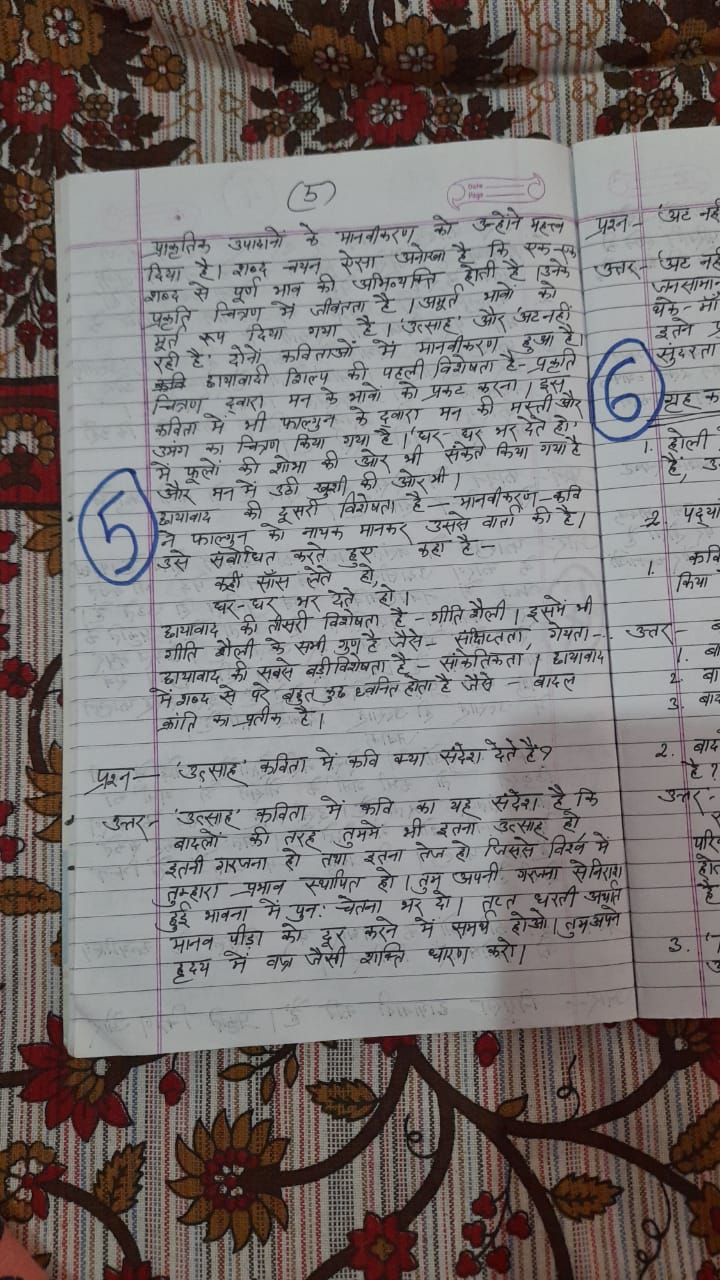 (5)
Date
Page
प्राकृतिक उपादानों के मानवीकरण को उन्होंने महत्त्व
दिया है। शब्द चयन ऐसा अनोखा है कि एक-एक
शब्द से पूर्ण भाव की अभिव्यक्ति होती है। उनके
प्रकृति चित्रण में जीवंतता है। अमूर्त भावों को
मूर्त रूप दिया गया है। 'उत्साह' और 'अट नहीं
रही है' दोनों कविताओं में मानवीकरण हुआ है।
छायावादी शिल्प की पहली विशेषता है- प्रकृति
चित्रण द्वारा मन के भावों को प्रकट करना। इस
कविता में भी फाल्गुन के द्वारा मन की मस्ती और
उमंग का चित्रण किया गया है। 'घर-घर भर देते हो'
में फूलों की शोभा की ओर भी संकेत किया गया है
और मन में उठी खुशी की ओर भी।
छायावाद की दूसरी विशेषता है- मानवीकरण-कवि
ने फाल्गुन को नायक मानकर उससे वार्ता की है।
उसे संबोधित करते हुए कहा है-
कहीं साँस लेते हो,
घर-घर भर देते हो।
छायावाद की तीसरी विशेषता है- गीति शैली। इसमें भी
गीति शैली के सभी गुण है जैसे- संक्षिप्तता, गेयता-
छायावाद की सबसे बड़ी विशेषता है- सांकेतिकता। छायावाद
में शब्द से परे बहुत कुछ ध्वनित होता है जैसे- बादल
क्रांति का प्रतीक है।
5
प्रश्न- 'उत्साह' कविता में कवि क्या संदेश देते है?
उत्तर- 'उत्साह' कविता में कवि का यह संदेश है कि
बादलों की तरह तुममें भी इतना उत्साह हो
इतनी गरजना हो तथा इतना तेज हो जिससे विश्व में
तुम्हारा प्रभाव स्थापित हो। तुम अपनी गरजना से निराश
हुई भावना में पुन: चेतना भर दो। तप्त धरती अर्थात
मानव पीड़ा को दूर करने में समर्थ होओ। तुम अपने
हृदय में वज्र जैसी शक्ति धारण करो।
प्रश्न- 'अट नहीं
उत्तर- 'अट नहीं
जनसामान
थके-
इतने
सुंदरता
6
गृह
1. होली
है,
2.
1. कवि
किया
उत्तर-
1.
2.
3.
2.
है?
उत्तर-
है
3.